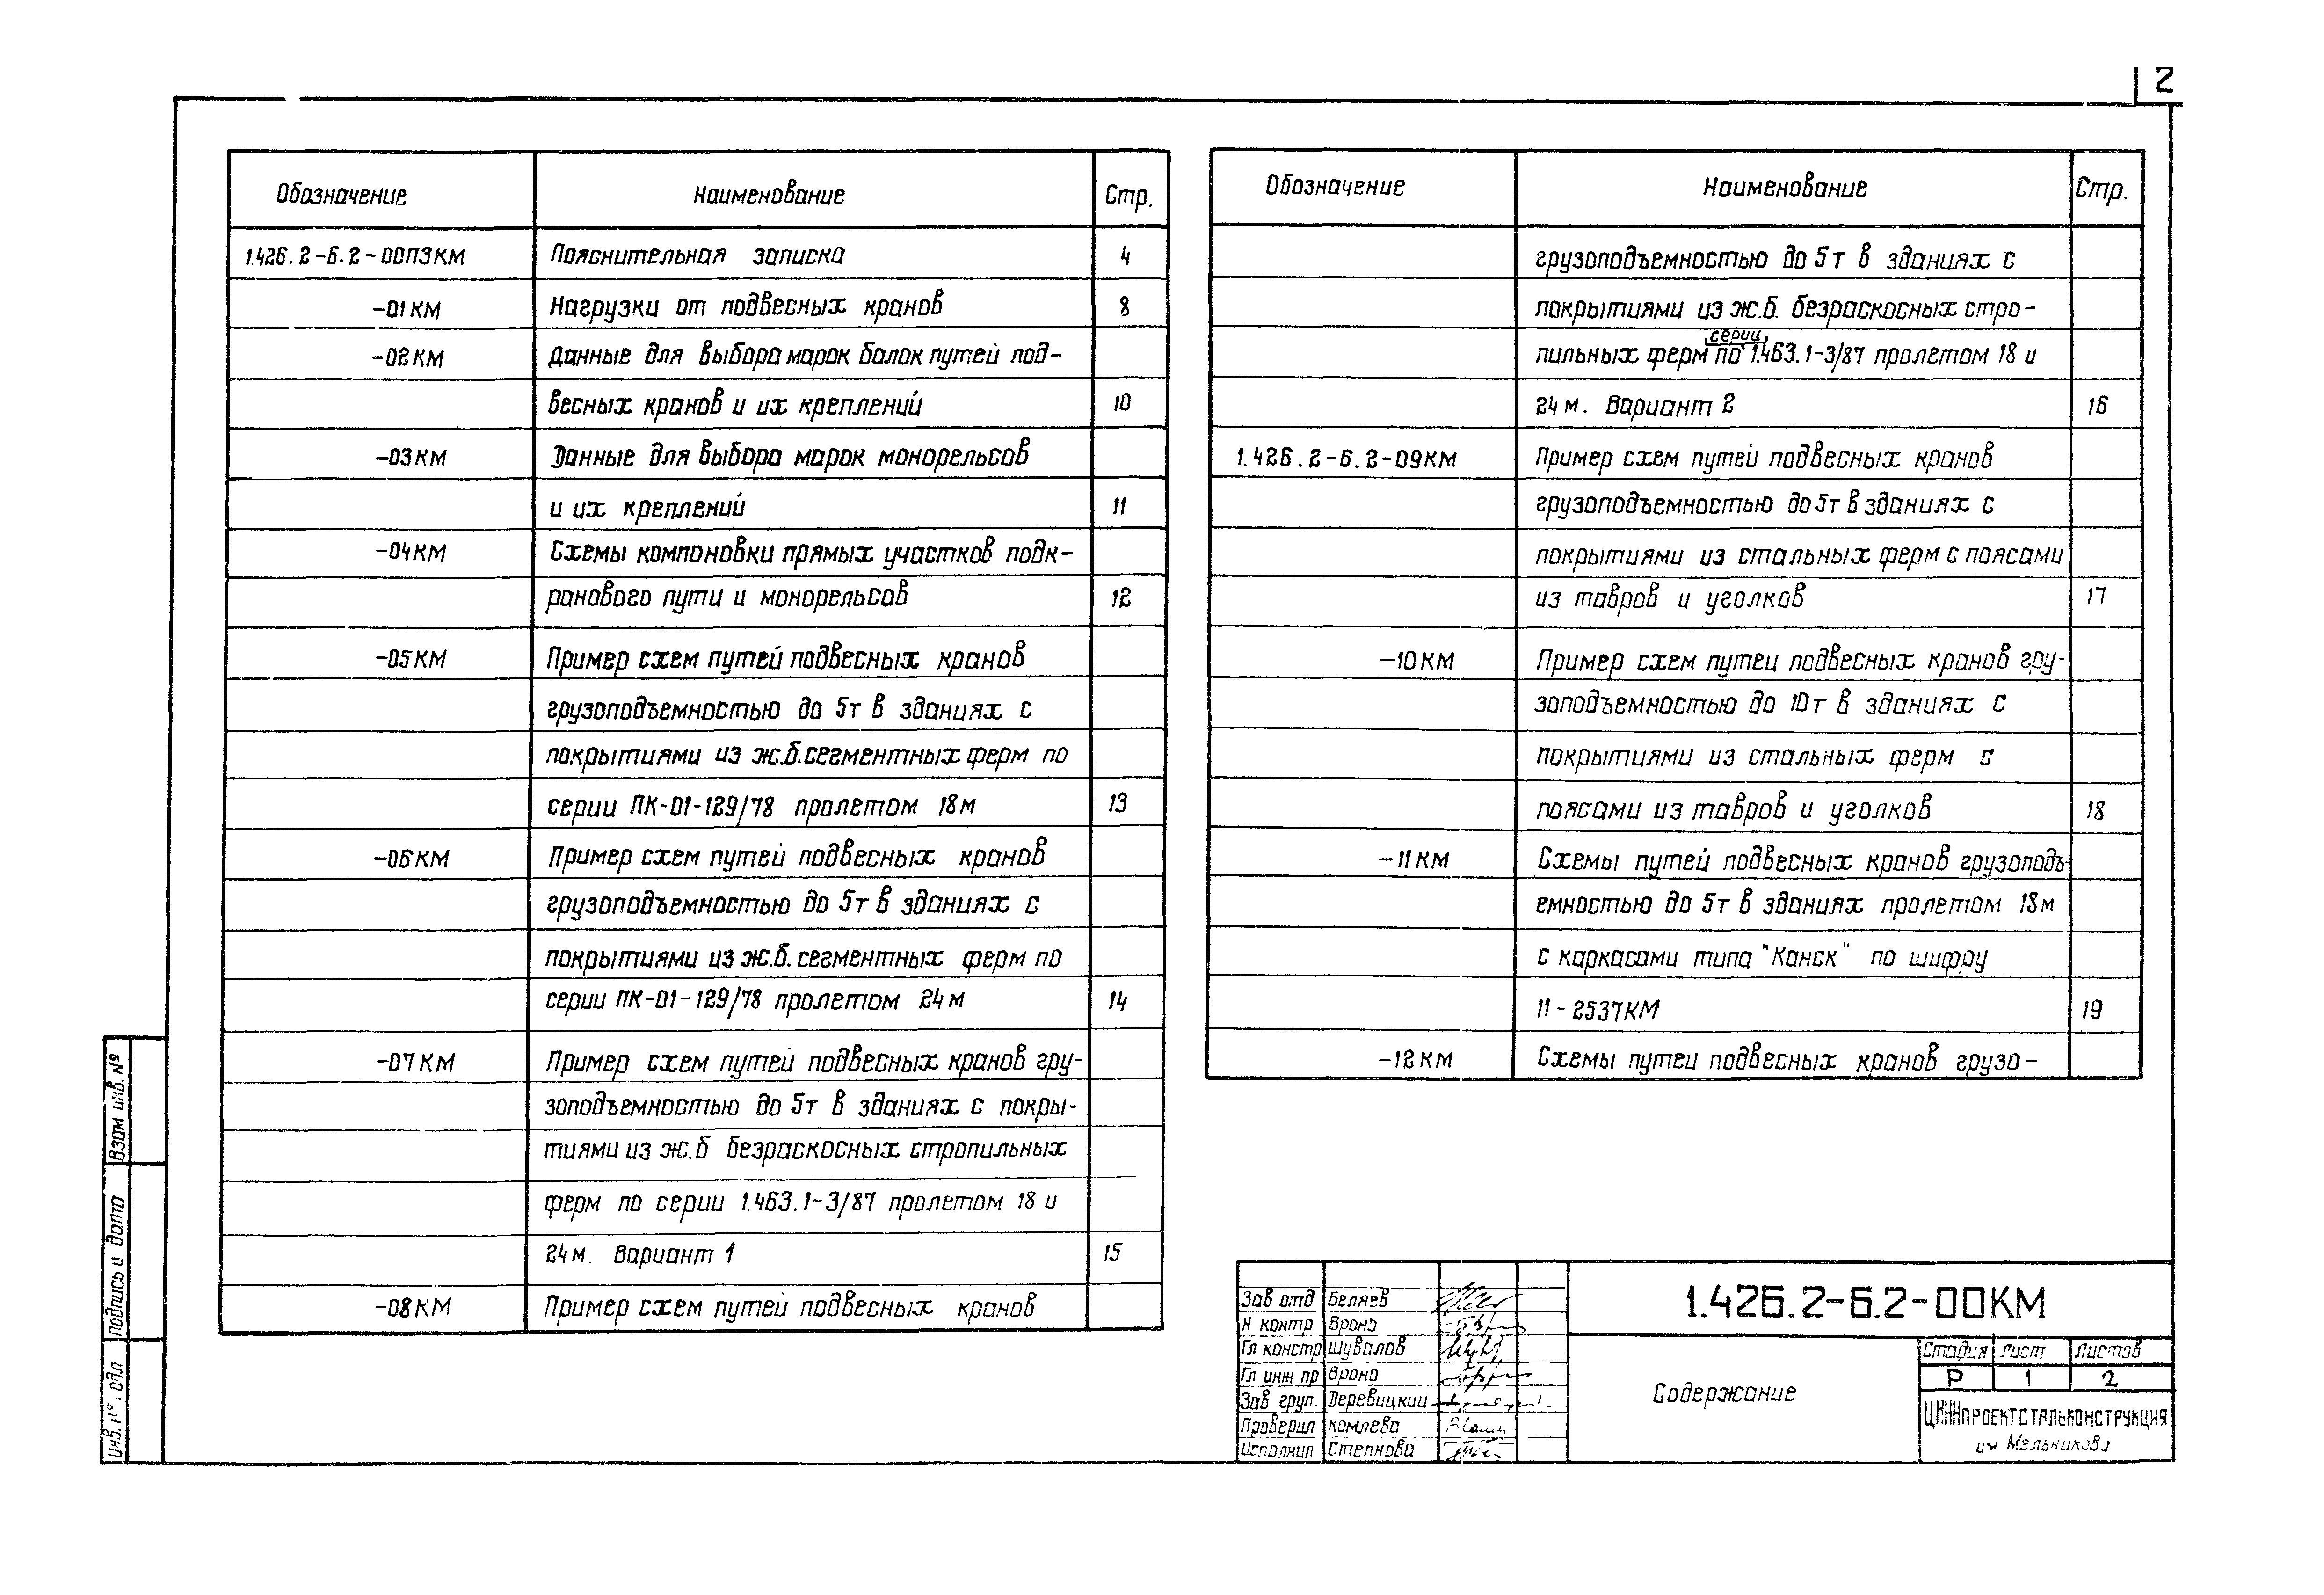 2
Обозначение Наименование Стр.
1.426.2-6.2-00ПЗКМ Пояснительная записка 4
-01КМ Нагрузки от подвесных кранов 8
-02КМ Данные для выбора марок балок путей под-
весных кранов и их креплений 10
-03КМ Данные для выбора марок монорельсов
и их креплений 11
-04КМ Схемы компоновки прямых участков подк-
ранового пути и монорельсов 12
-05КМ Пример схем путей подвесных кранов
грузоподъемностью до 5т в зданиях с
покрытиями из ж.б.сегментных ферм по
серии ПК-01-129/78 пролетом 18м 13
-06КМ Пример схем путей подвесных кранов
грузоподъемностью до 5т в зданиях с
покрытиями из ж.б. сегментных ферм по
серии ПК-01-129/78 пролетом 24м 14
-07КМ Пример схем путей подвесных кранов гру-
зоподъемностью до 5т в зданиях с покры-
тиями из ж.б безраскосных стропильных
ферм по серии 1.463.1-3/87 пролетом 18 и
24м. Вариант 1 15
-08КМ Пример схем путей подвесных кранов
Обозначение Наименование Стр.
грузоподъемностью до 5т в зданиях с
покрытиями из ж.б. безраскосных стро-
пильных ферм по серии 1.463.1-3/87 пролетом 18 и
24м. Вариант 2 16
1.426.2-6.2-09КМ Пример схем путей подвесных кранов
грузоподъемностью до 5т в зданиях с
покрытиями из стальных ферм с поясами
из тавров и уголков 17
-10КМ Пример схем путеи подвесных кранов гру-
зоподъемностью до 10т в зданиях с
покрытиями из стальных ферм с
поясами из тавров и уголков 18
-11КМ Схемы путей подвесных кранов грузоподъ-
емностью до 5т в зданиях пролетом 18м
с каркасами типа "Канск" по шифру
11-2537КМ 19
-12КМ Схемы путеи подвесных кранов грузо-
Взам инв. №
подпись и дата
Инв. №, одл
Зав отд Беляев
Н контр Вроно
Гл констр Шувалов
Гл инж пр Вроно
Зав груп. Деревицкий
Проверил Комлева
Исполнил Степнова
1.426.2-6.2-00КМ
Содержание
Стадия Лист Листов
Р 1 2
ЦНИИПРОЕКТСТАЛЬКОНСТРУКЦИЯ
им Мельникова